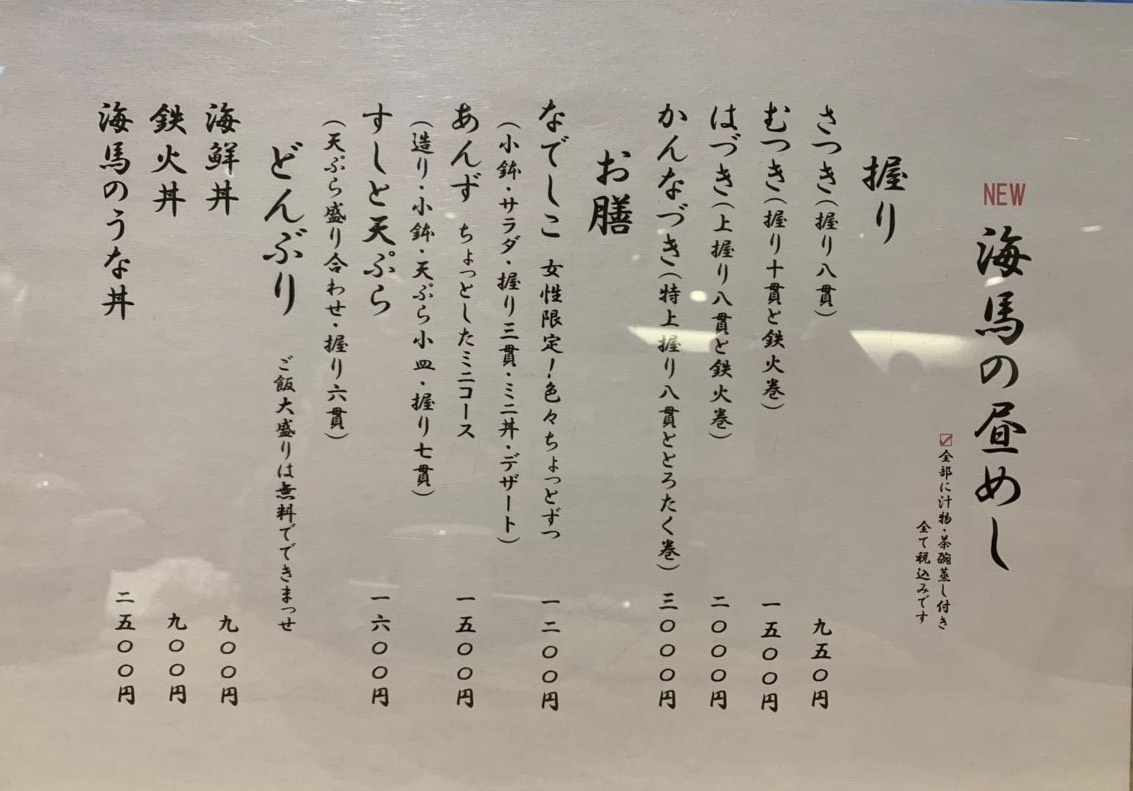 NEW
海馬の昼めし
☑全部に汁物・茶碗蒸し付き
全て税込みです
握り
さつき(握り八貫) 九五〇円
むつき(握り十貫と鉄火巻) 一五〇〇円
はづき(上握り八貫と鉄火巻) 二〇〇〇円
かんなづき(特上握り八貫ととろたく巻) 三〇〇〇円
お膳
なでしこ 女性限定!色々ちょっとずつ 一二〇〇円
(小鉢・サラダ・握り三貫・ミニ丼・デザート)
あんず ちょっとしたミニコース 一五〇〇円
(造り・小鉢・天ぷら小皿・握り七貫)
すしと天ぷら 一六〇〇円
(天ぷら盛り合わせ・握り六貫)
どんぶり ご飯大盛りは無料でできまっせ
海鮮丼 九〇〇円
鉄火丼 九〇〇円
海馬のうな丼 二五〇〇円